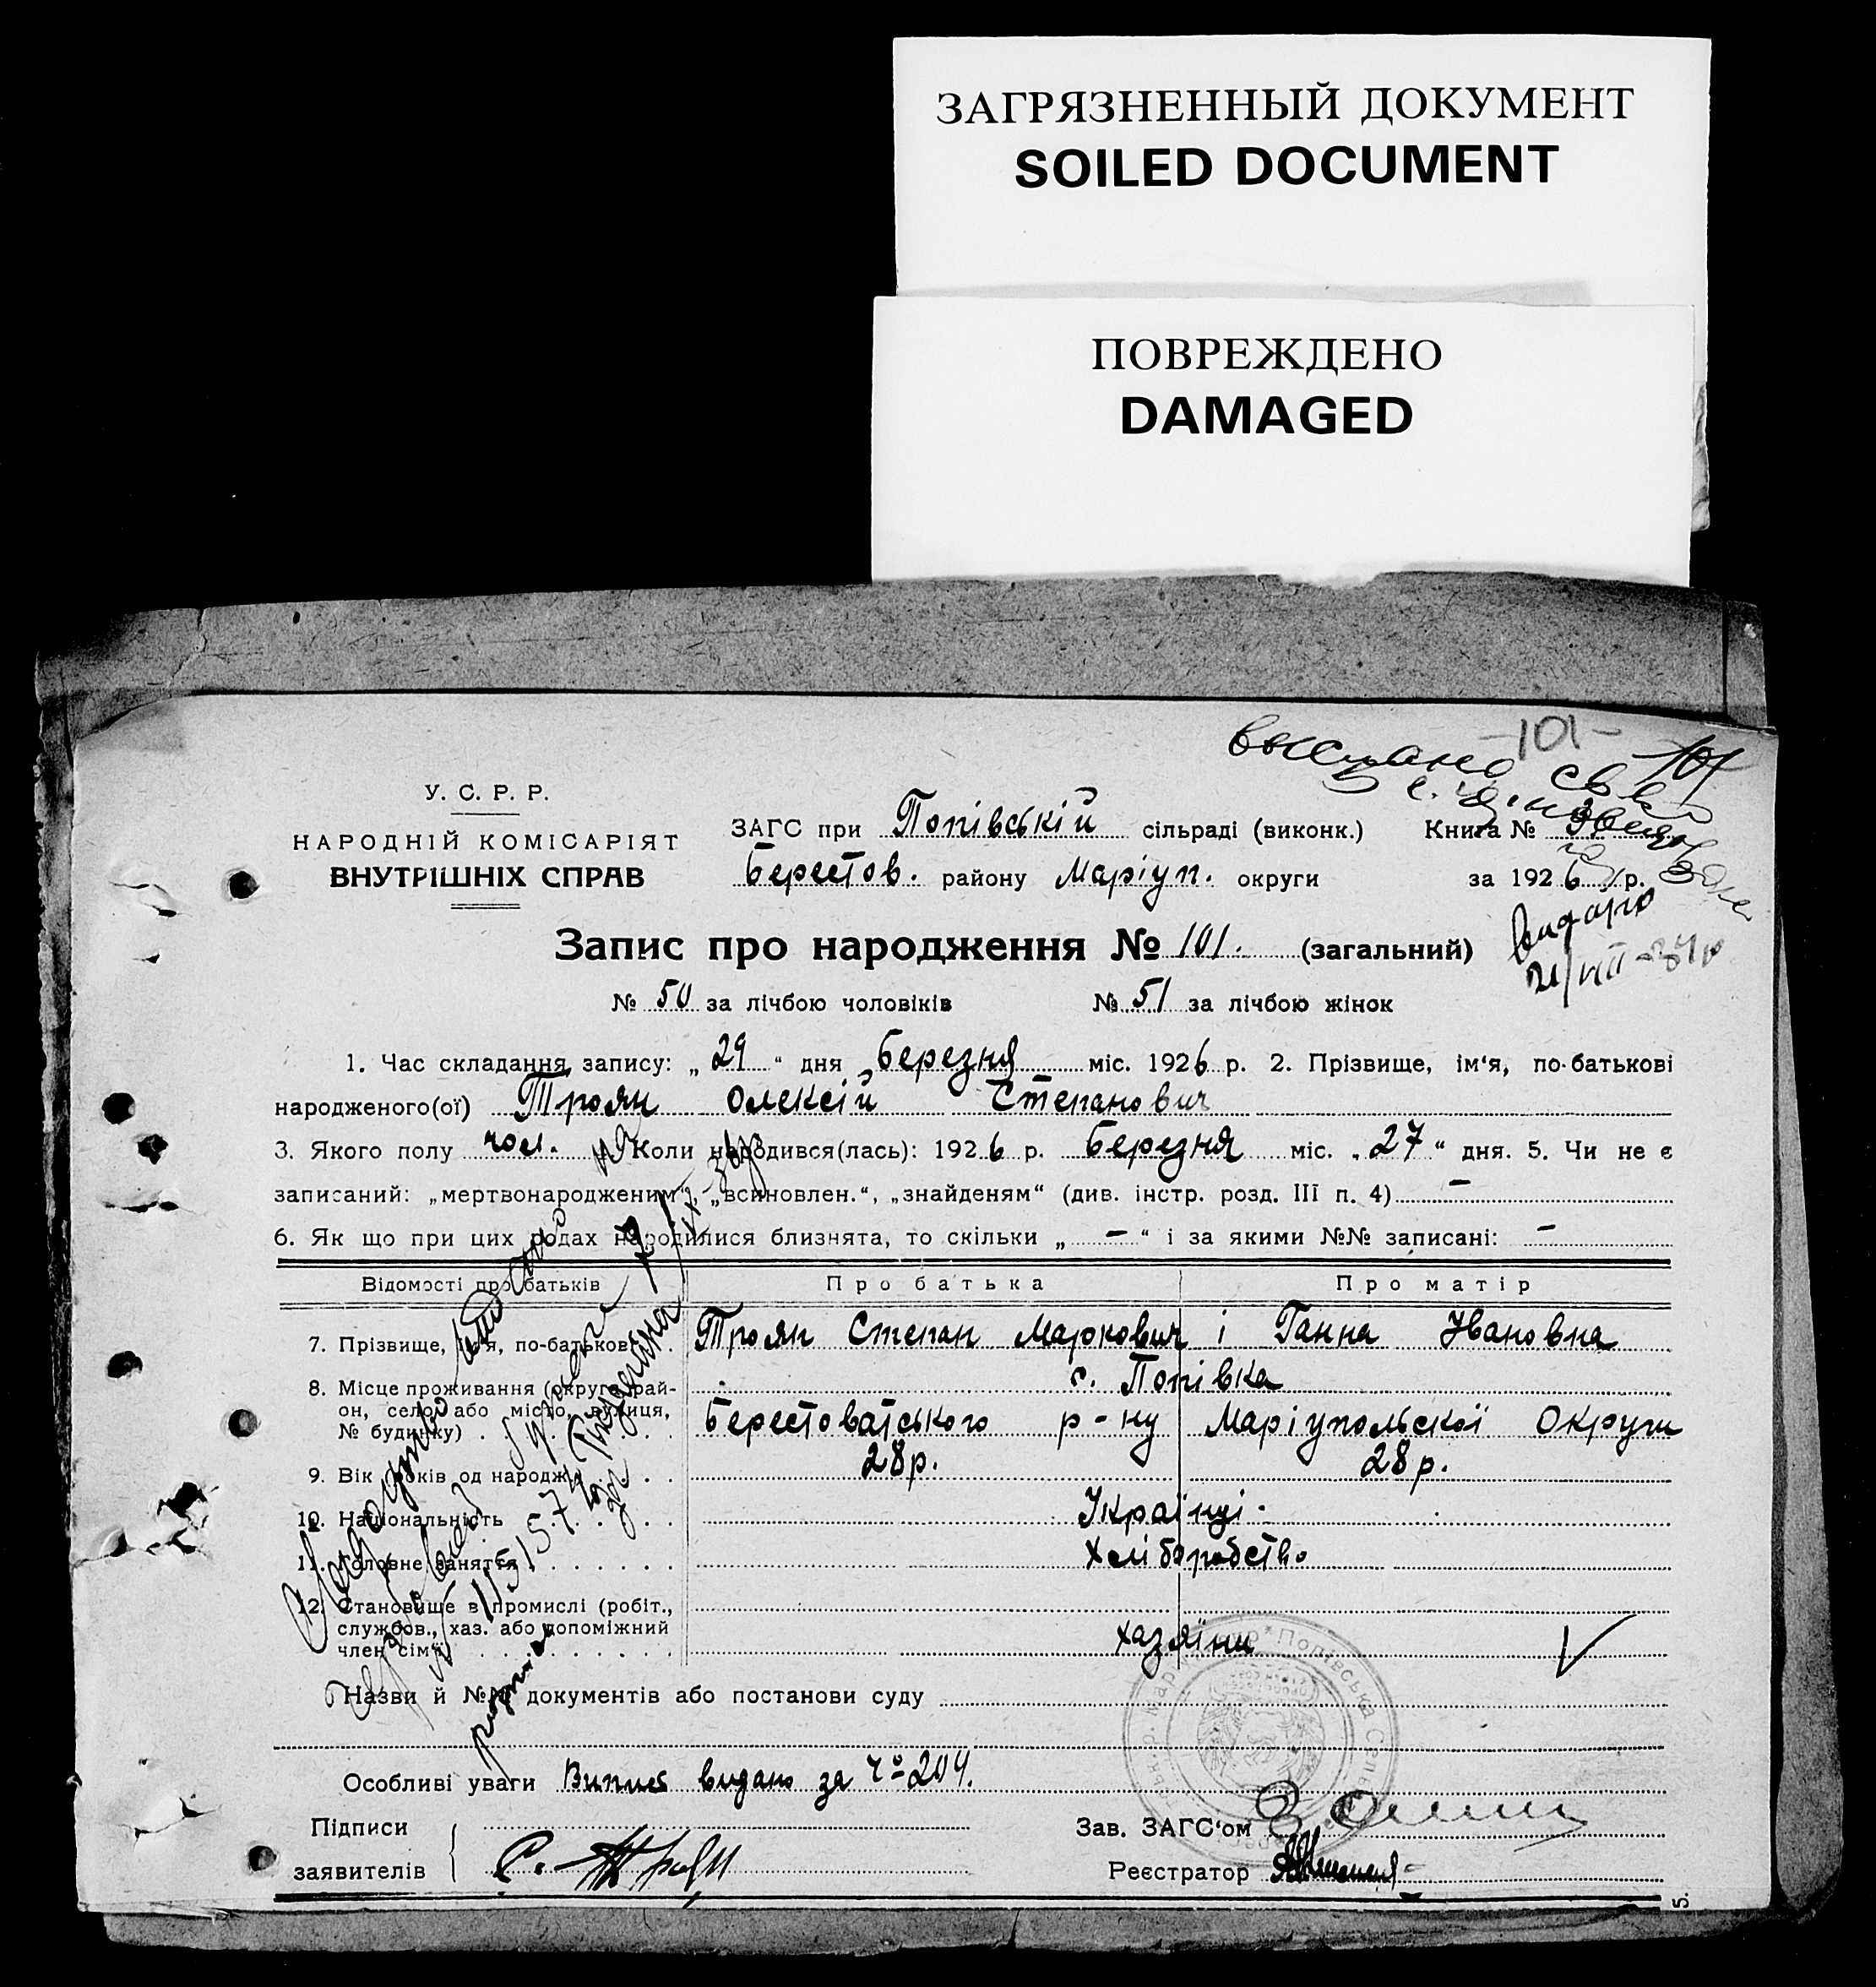 ЗАГРЯЗНЕННЫЙ ДОКУМЕНТ
SOILED DOCUMENT
ПОВРЕЖДЕНО
DAMAGED
-101-
101
У. С. Р. Р.
НАРОДНІЙ КОМІСАРІЯТ
ВНУТРІШНІХ СПРАВ
ЗАГС при Попівській сільраді (виконк.) Книга №
Берестов. району Маріуп. округи за 1926 р.
Запис про народження № 101. (загальний)
видано
21/VII-37р
№ 50 за лічбою чоловіків № 51 за лічбою жінок
1. Час складання запису: „29“ дня Березня міс. 1926 р. 2. Прізвище, ім'я, по-батькові
народженого(ої) Троян Олексій Степанович
3. Якого полу чол. Коли народився(лась): 1926 р. Березня міс. „27“ дня. 5. Чи не є
записаний: „мертвонародженим“, „всиновлен.“, „знайденям“ (див. інстр. розд. III п. 4) —
6. Як що при цих родах народилися близнята, то скільки „—“ і за якими №№ записані: —
Відомості про батьків Про батька Про матір
7. Прізвище, ім'я, по-батькові Троян Степан Маркович і Ганна Івановна
8. Місце проживання (округа, рай-
он, село або місто, вулиця,
№ будинку)
с. Попівка
Берестоватського р-ну Маріупольскої Округи
9. Вік років од народж. 28р. 28р.
10. Національність Українці.
11. Головне заняття Хліборобство
12. Становище в промислі (робіт.,
службов., хаз. або допоміжний
член сім'ї) хазяїни
Назви й №№ документів або постанови суду
Особливі уваги Випис видано за Ч° 204.
Підписи
заявителів С. Троян
Зав. ЗАГС'ом
Реєстратор
5.